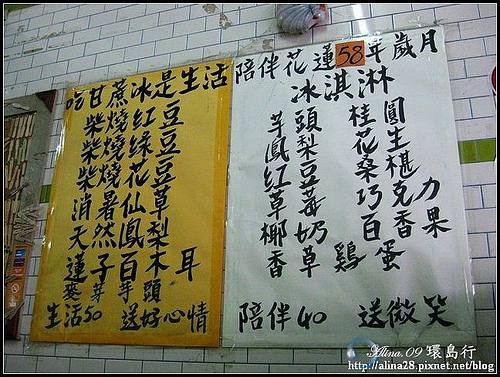 吃甘蔗冰是生活
柴燒紅豆
柴燒綠豆
柴燒花豆
消暑仙草
天然鳳梨
蓮子百木耳
麥芽芋頭
生活50 送好心情
陪伴花蓮58年歲月
冰淇淋
芋頭 桂圓
鳳梨 花生
紅豆 桑椹
草莓 巧克力
椰奶 百香果
香草 雞蛋
陪伴40 送微笑
Alina.09 環島行
http://alina28.pixnet.net/blog